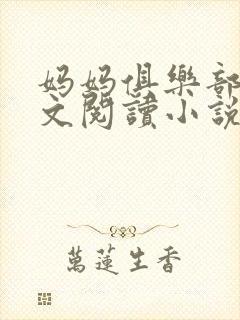 妈妈俱樂部
文閱讀小說
萬蓮生香